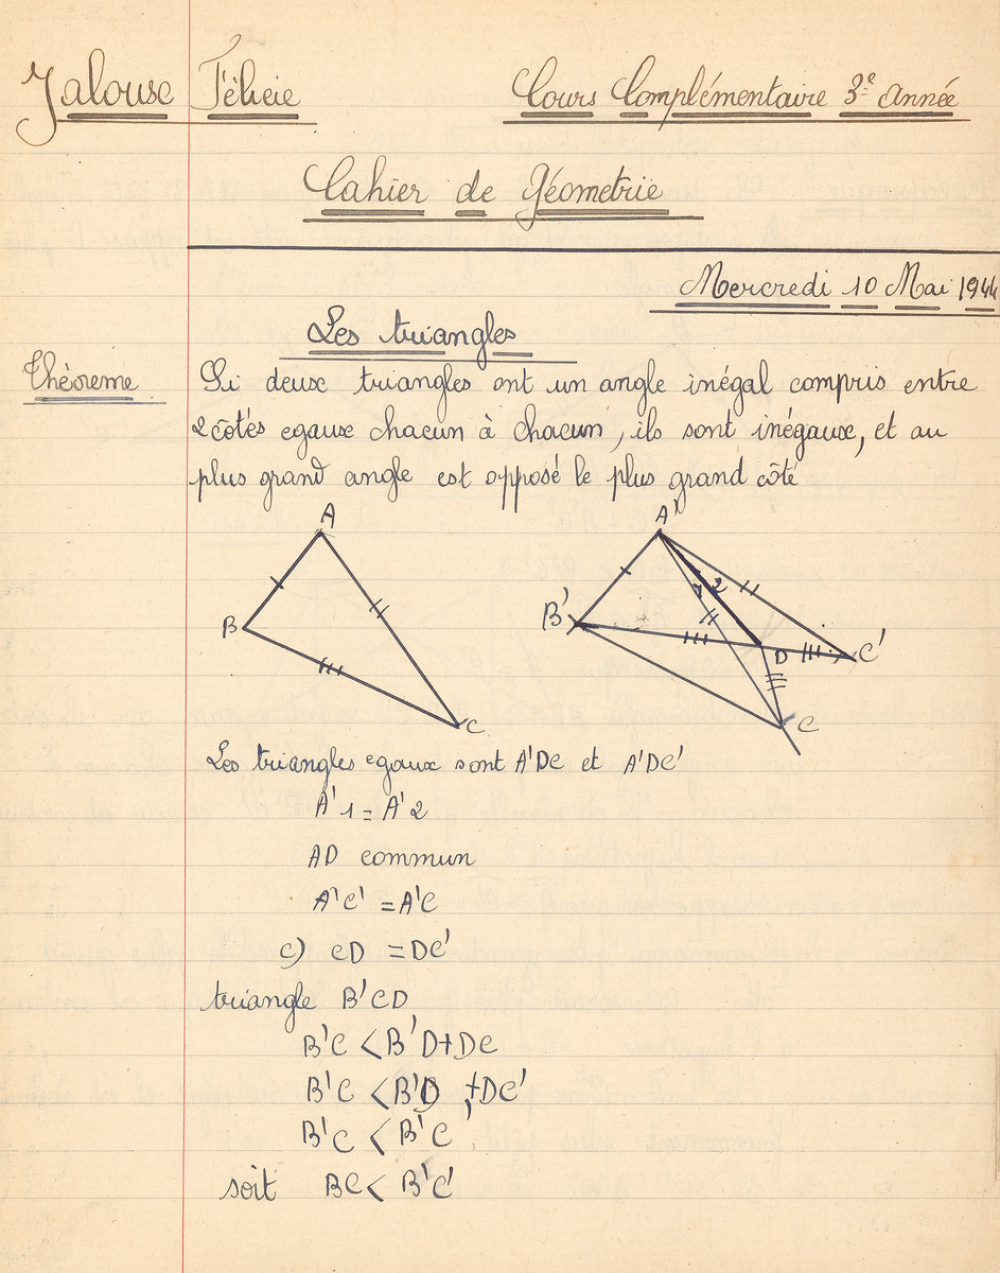 Jalouse Félicie
Cours Complémentaire 3e année
Cahier de Géometrie
Mercredi 10 Mai 1944
Les triangles
Théoreme
Si deux triangles ont un angle inégal compris entre
2 côtés egaux chacun à chacun, ils sont inégaux, et au
plus grand angle est opposé le plus grand côté
A
B
C
A'
B'
1 2
D
C'
C
Les triangles egaux sont A'DC et A'DC'
A'1 = A'2
AD commun
A'C' = A'C
c) CD = DC'
triangle B'CD
B'C < B'D + DC
B'C < B'D + DC'
B'C < B'C'
soit BC < B'C'